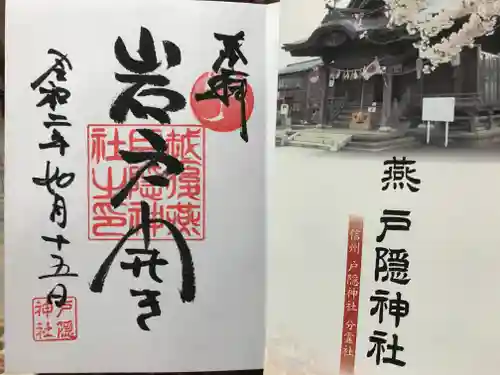 奉拝
岩戸開き
越後燕
戸隠神
社之印
令和二年七月十五日
戸隠
神社
燕 戸隠神社
信州 戸隠神社 分霊社